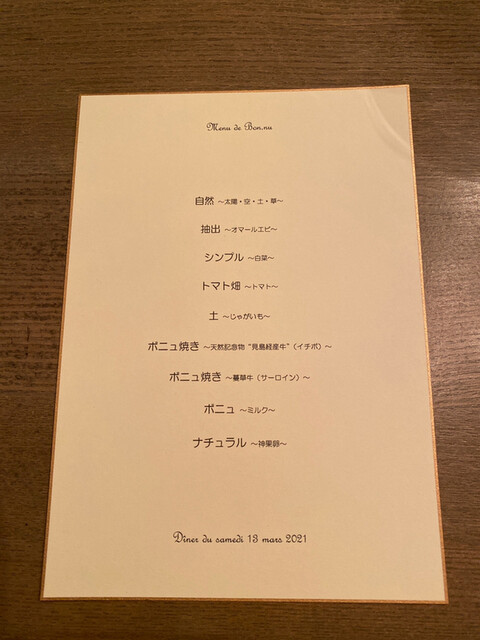 Menu de Bon.nu
自然 ～太陽・空・土・草～
抽出 ～オマールエビ～
シンプル ～白菜～
トマト畑 ～トマト～
土 ～じゃがいも～
ボニュ焼き ～天然記念物 "見島経産牛"（イチボ）～
ボニュ焼き ～蔓草牛（サーロイン）～
ボニュ ～ミルク～
ナチュラル ～神果卵～
Dîner du samedi 13 mars 2021